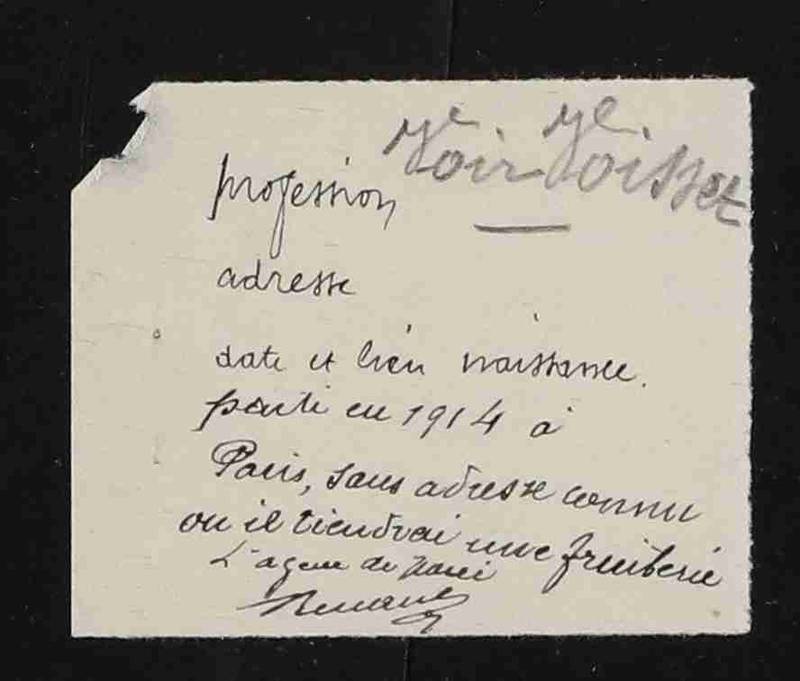 Voir Voisset
profession
adresse
date et lieu naissance.
parti en 1914 à
Paris, sans adresse connu
ou il tiendrai une fruiterie
L'agent de